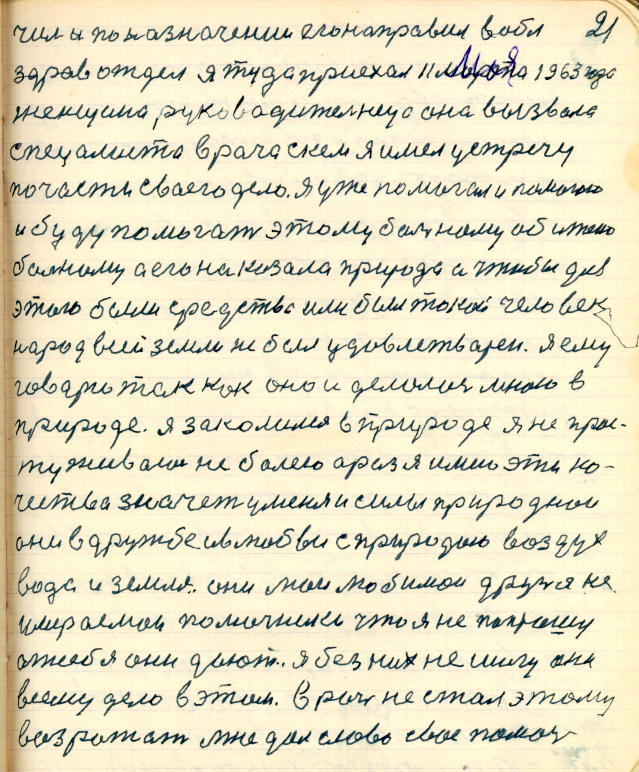 21
чил и по назначении его направил в обл
здравотдел я туда приехал 11 марта 1963 года
женщина руководителнеца она вызвала
спецалиста врача скем я имел устречу
почасти сваего дело. Я уже помогал и помогаю
и буду помогат этому болному обижено
болному а его наказала природа а чтобы для
этого были средства или был токой человек
народ всей земли не был удовлетварен. Я ему
говарю так как оно и делолос мною в
природе. я заколился в природе я не прос-
туживаюс не болею а раз я имею эти ка-
чества значет у меня и силы природнои
они в дружбе и в любви с природаю воздух
вода и земля. они мои любимои друзя не
имраемои помочники что я не попрошу
они дают. я без них не шагу они
всему дело в этом. Врач не стал этому
возрожат мне дал слово свое помоч